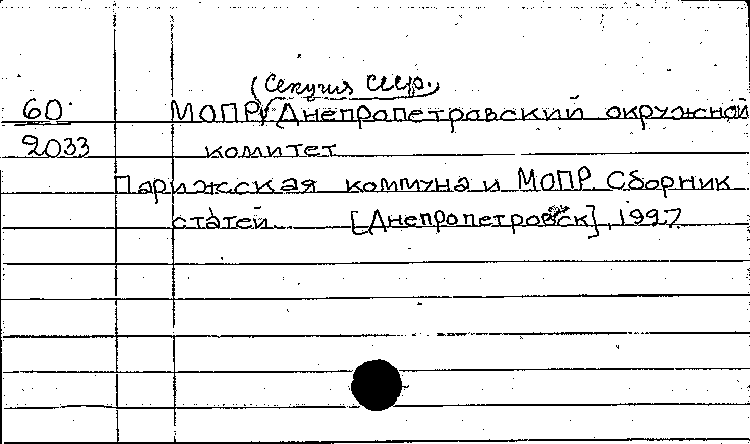 (Секция СССР.)
60 МОПР. Днепропетровский окружной
2033 комитет
Парижская коммуна и МОПР. Сборник
статей. [Днепропетровск], 1927